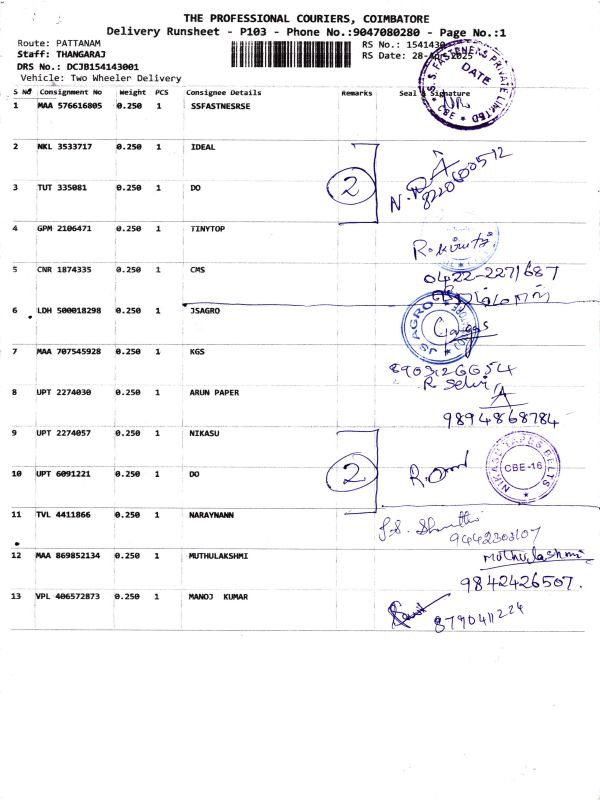 THE PROFESSIONAL COURIERS, COIMBATORE
Delivery Runsheet - P103 - Phone No.:9047080280 - Page No.:1
Route: PATTANAM
Staff: THANGARAJ
DRS No.: DCJB154143001
Vehicle: Two Wheeler Delivery
RS No.: 1541430
RS Date: 28-Apr-2025
S No Consignment No Weight PCS Consignee Details Remarks Seal & Signature
1 MAA 576616805 0.250 1 SSFASTNESRSE
S.S. FASTENERS PRIVATE LIMITED
DATE
CBE
2 NKL 3533717 0.250 1 IDEAL
3 TUT 335081 0.250 1 DO
2
8220600512
4 GPM 2106471 0.250 1 TINYTOP
5 CNR 1874335 0.250 1 CMS
0422-2271687
6 LDH 500018298 0.250 1 JSAGRO
JS AGRO
7 MAA 707545928 0.250 1 KGS
8903266654
R Selvi
8 UPT 2274030 0.250 1 ARUN PAPER
9894868784
9 UPT 2274057 0.250 1 NIKASU
10 UPT 6091221 0.250 1 DO
2
NIKASU TAPES BELTS
CBE-16
11 TVL 4411866 0.250 1 NARAYNANN
9442303107
12 MAA 869852134 0.250 1 MUTHULAKSHMI
Muthulashmi
9842426507.
13 VPL 406572873 0.250 1 MANOJ KUMAR
8790411224